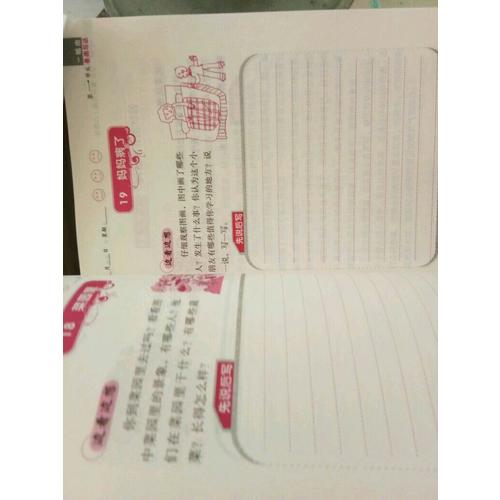 第一单元
月 日 星期
19 妈妈病了
边看边想
仔细观察图画，图中画了哪些
人？发生了什么事？你认为这个小
朋友有哪些值得你学习的地方？说
一说，写一写。
先说后写
18 菜园里
边看边想
你到菜园里去过吗？看看图
中菜园里的景象，有哪些人？他
们在菜园里干什么？有哪些蔬
菜？长得怎么样？
先说后写